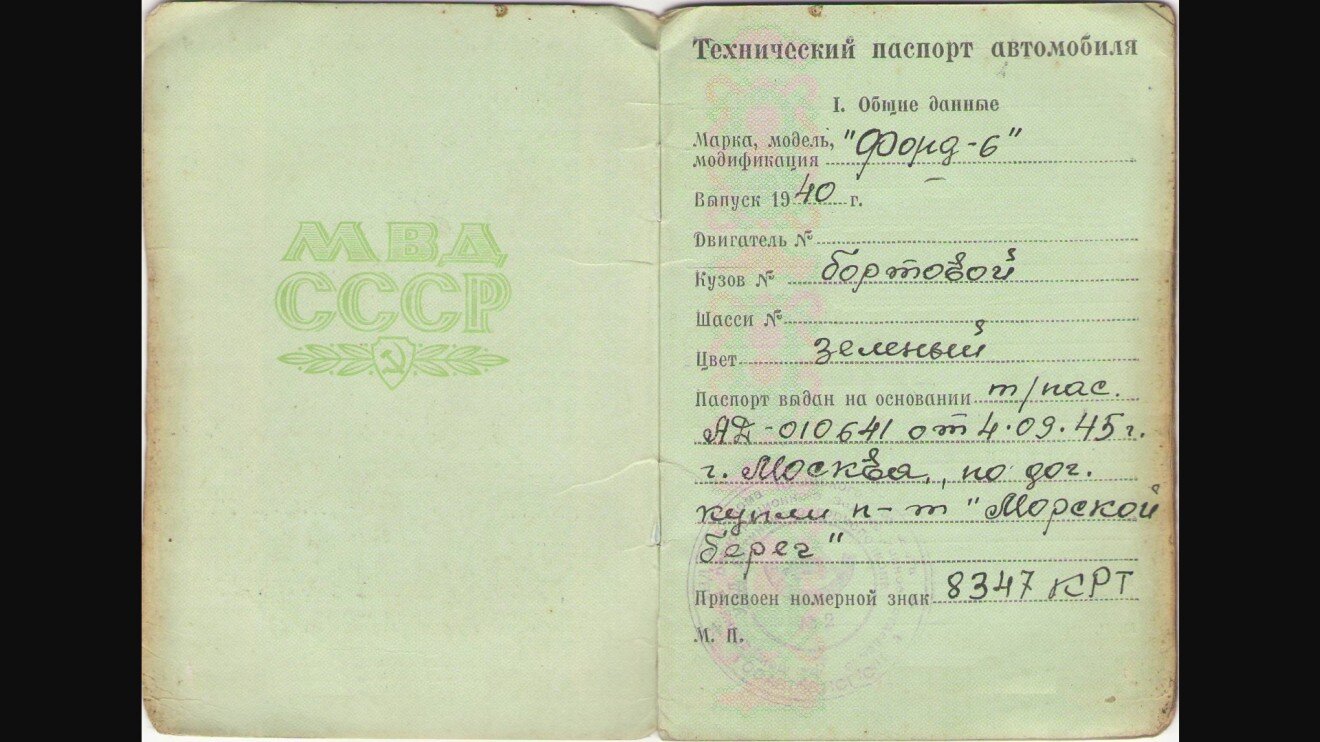 МВД
СССР
Технический паспорт автомобиля
I. Общие данные
Марка, модель, "Форд-6"
модификация
Выпуск 1940 г.
Двигатель №
Кузов № бортовой
Шасси №
Цвет зеленый
Паспорт выдан на основании т/пас.
АД-010641 от 4.09.45 г.
г. Москва, по дог.
купли п-т "Морской
берег"
Присвоен номерной знак 8347 КРТ
М. П.